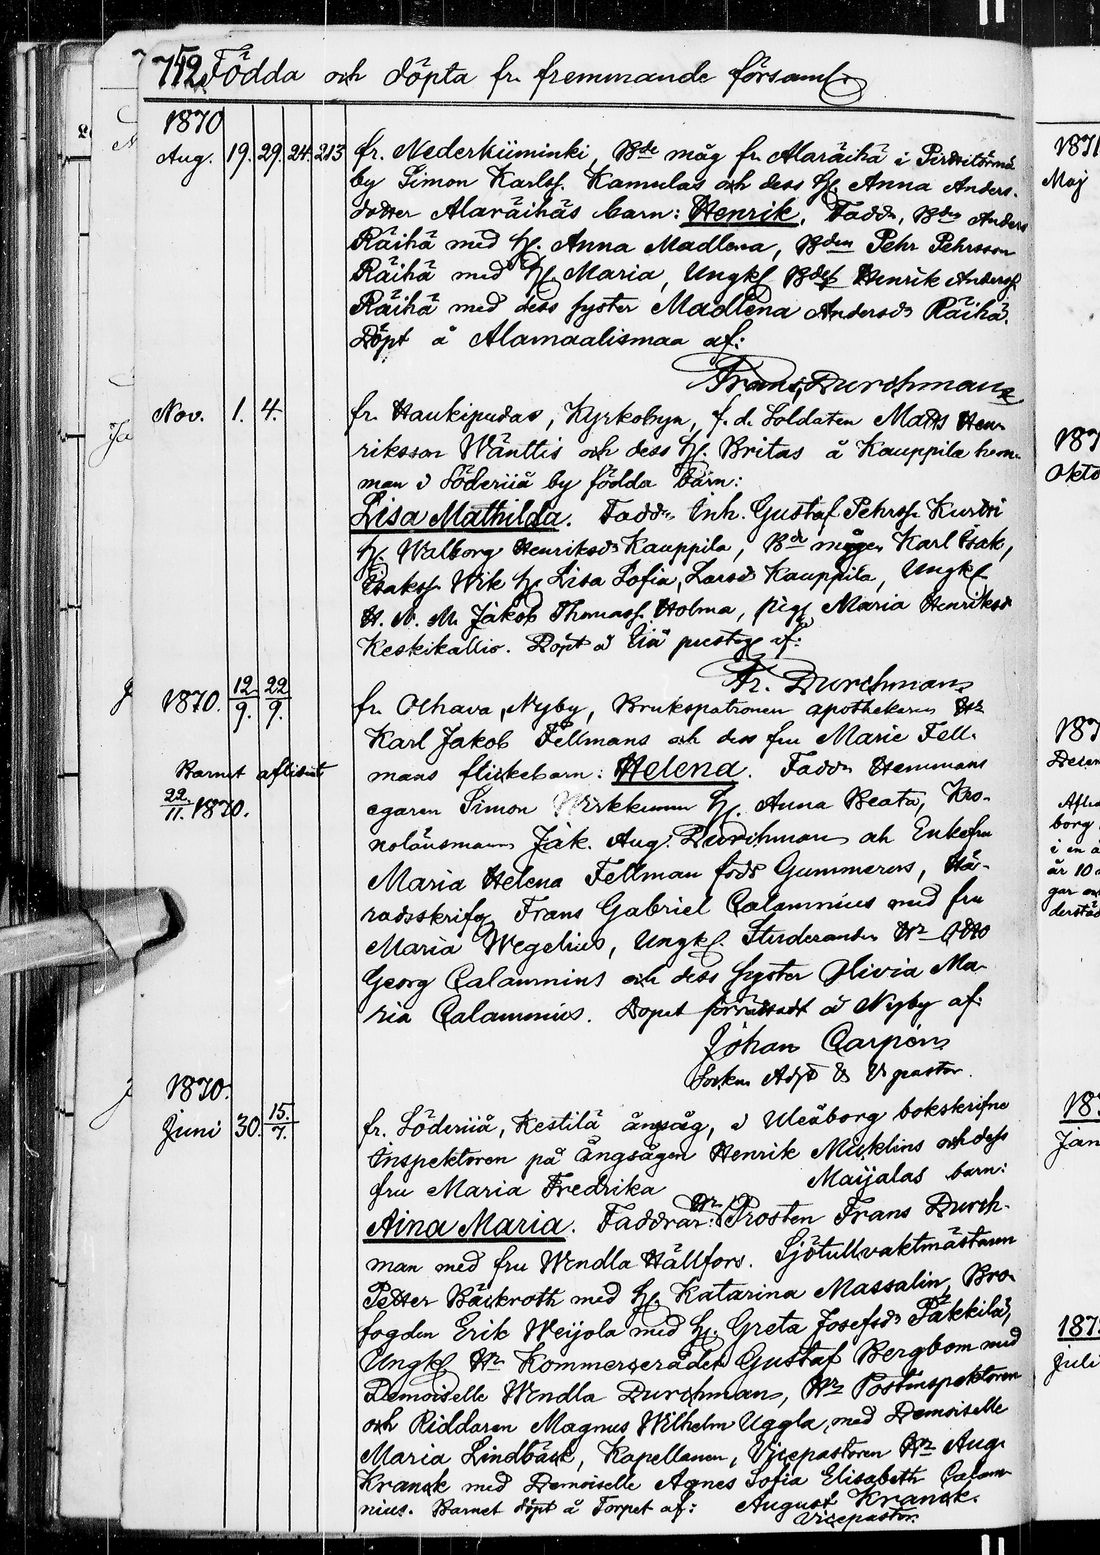 752. Födda och döpta fr. fremmande församl.
1870
Aug. 19. 29. 24. 213 fr. Nederkiiminki, Bde måg fr. Alaräihä i
by Simon Karlss. Kamulas och dess H. Anna Anders-
dotter Alaräihäs barn: Henrik. Fadd. Bdn Anders
Räihä med H. Anna Madlena, Bden Pehr Pehrsson
Räihä med H. Maria, Ungk. Bdes Henrik Anderss.
Räihä med dess syster Madlena Andersdr Räihä.
Döpt å Alamaalismaa af:
Frans Durchman
Nov. 1. 4. fr. Haukipudas, Kyrkobyn, f. d. Soldaten Matts Hen-
riksson Wänttis och dess H. Britas å Kauppila hem-
man i Söderiiå by födda barn:
Lisa Mathilda. Faddr. Inh. Gustaf Pehrss.
H. Walborg Henriksdr Kauppila, Bde mågen Karl Isak
Isakss. Wik H. Lisa Sofia Larsdr Kauppila, Ungk.
H. N. M. Jakob Thomass. Holma, pig. Maria Henriksdr
Keskikallio. Döpt å Iiå prestg. af:
Fr. Durchman
1870. 12/9. 22/9. fr. Olhava, Nyby, Brukspatronen apothekaren Hr
Karl Jakob Fellmans och dess fru Marie Fell-
Barnet aflidit mans flickebarn: Helena. Faddr Hemmans
22/11. 1870. egaren Simon H. Anna Beata, Kro-
nolänsman Jak. Aug. Durchman och Enkefru
Maria Helena Fellman född Gummerus, Hä-
radsskrifv. Frans Gabriel Calamnius med fru
Maria Wegelius, Ungk. Studeranden Hr Otto
Georg Calamnius och dess syster Olivia Ma-
ria Calamnius. Dopet förrättadt å Nyby af:
Johan Carpén
Socken Adjt & V pastor.
1870.
Juni 30. 15./7. fr. Söderiiå, Kestilä ångsåg, i Uleåborg bokskrifne
Inspektoren på Ångsågen Henrik och dess
fru Maria Fredrika Maijalas barn:
Aina Maria. Faddrar: Hr Prosten Frans Durch-
man med fru Wendla Hällfors. Sjötullvaktmästaren
Petter Bäckroth med H. Katarina Massalin, Bro-
fogden Erik Weijola med H. Greta Josefsdr Päkkilä,
Ungk. Hr Kommerserådet Gustaf Bergbom med
Demoiselle Wendla Durchman, Hr Postinspektoren
och Riddaren Magnus Wilhelm Uggla med Demoiselle
Maria Lindbäck, Kapellanen, Vicepastoren Hr Aug.
Kranck med Demoiselle Agnes Sofia Elisabeth Calam-
nius. Barnet döpt å Torpet af: August Kranck.
Vicepastor.
1871
Maj
187
Okto
187
Decem
borg
i en å
år 10
gar
derstäd
187
Jan
187
Juli